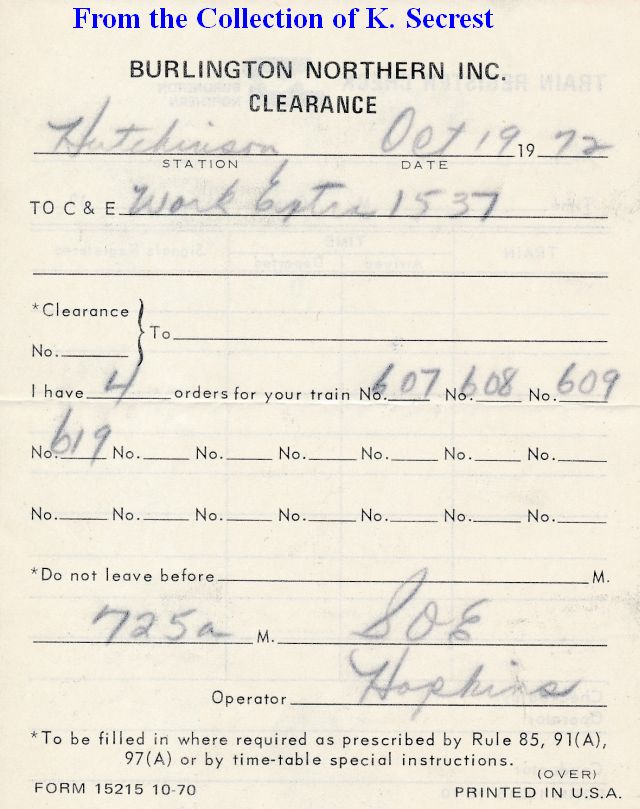 From the Collection of K. Secrest
BURLINGTON NORTHERN INC.
CLEARANCE
Hutchinson Oct 19 1972
STATION DATE
TO C & E Work Extra 1537
*Clearance
No. To
I have 4 orders for your train No. 607 No. 608 No. 609
No. 619 No. No. No. No. No. No.
No. No. No. No. No. No. No.
*Do not leave before M.
725a M. SOE
Operator Hopkins
*To be filled in where required as prescribed by Rule 85, 91(A),
97(A) or by time-table special instructions.
(OVER)
FORM 15215 10-70 PRINTED IN U.S.A.